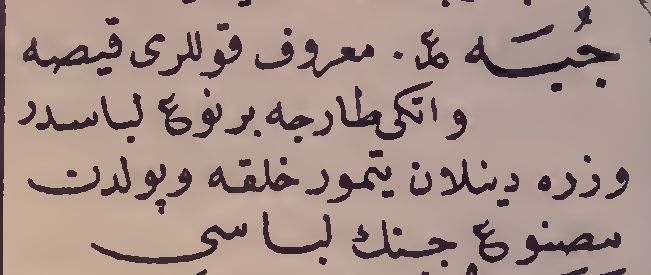 جُبَّه ع. معروف قوللرى قيصه
واتكى طارجه بر نوع لباسدر
وزره دينلان يتمور خلقه وپولدن
مصنوع جنك لباسى